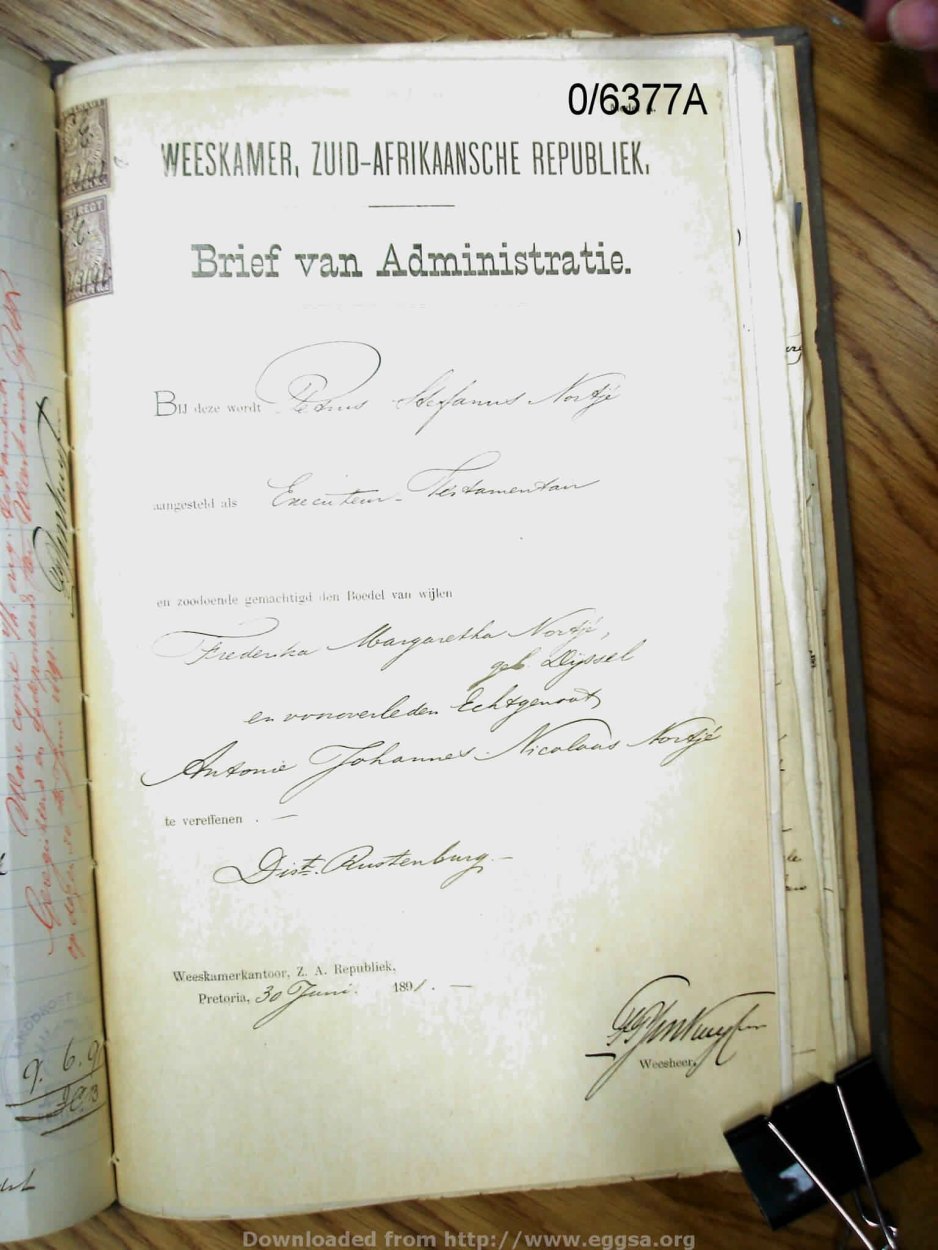 0/6377A
WEESKAMER, ZUID-AFRIKAANSCHE REPUBLIEK.
Brief van Administratie.
BIJ deze wordt Petrus Stefanus Nortjé
aangesteld als Executeur-Testamentair
en zoodoende gemachtigd den Boedel van wijlen
Frederika Margaretha Nortjé,
geb. Dijssel
en vooroverleden Echtgenoot
Antonie Johannes Nicolaas Nortjé
te vereffenen . —
Dist. Rustenburg —
Weeskamerkantoor, Z. A. Republiek,
Pretoria, 30 Juni. 1891. —
Weesheer.
Ware copie
Downloaded from http://www.eggsa.org